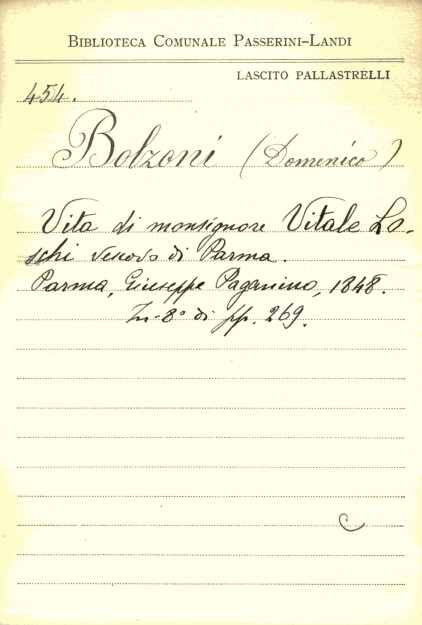 BIBLIOTECA COMUNALE PASSERINI-LANDI
LASCITO PALLASTRELLI
454.
Bolzoni (Domenico)
Vita di monsignore Vitale Lo-
schi vescovo di Parma.
Parma, Giuseppe Paganino, 1848.
In-8° di pp. 269.
C